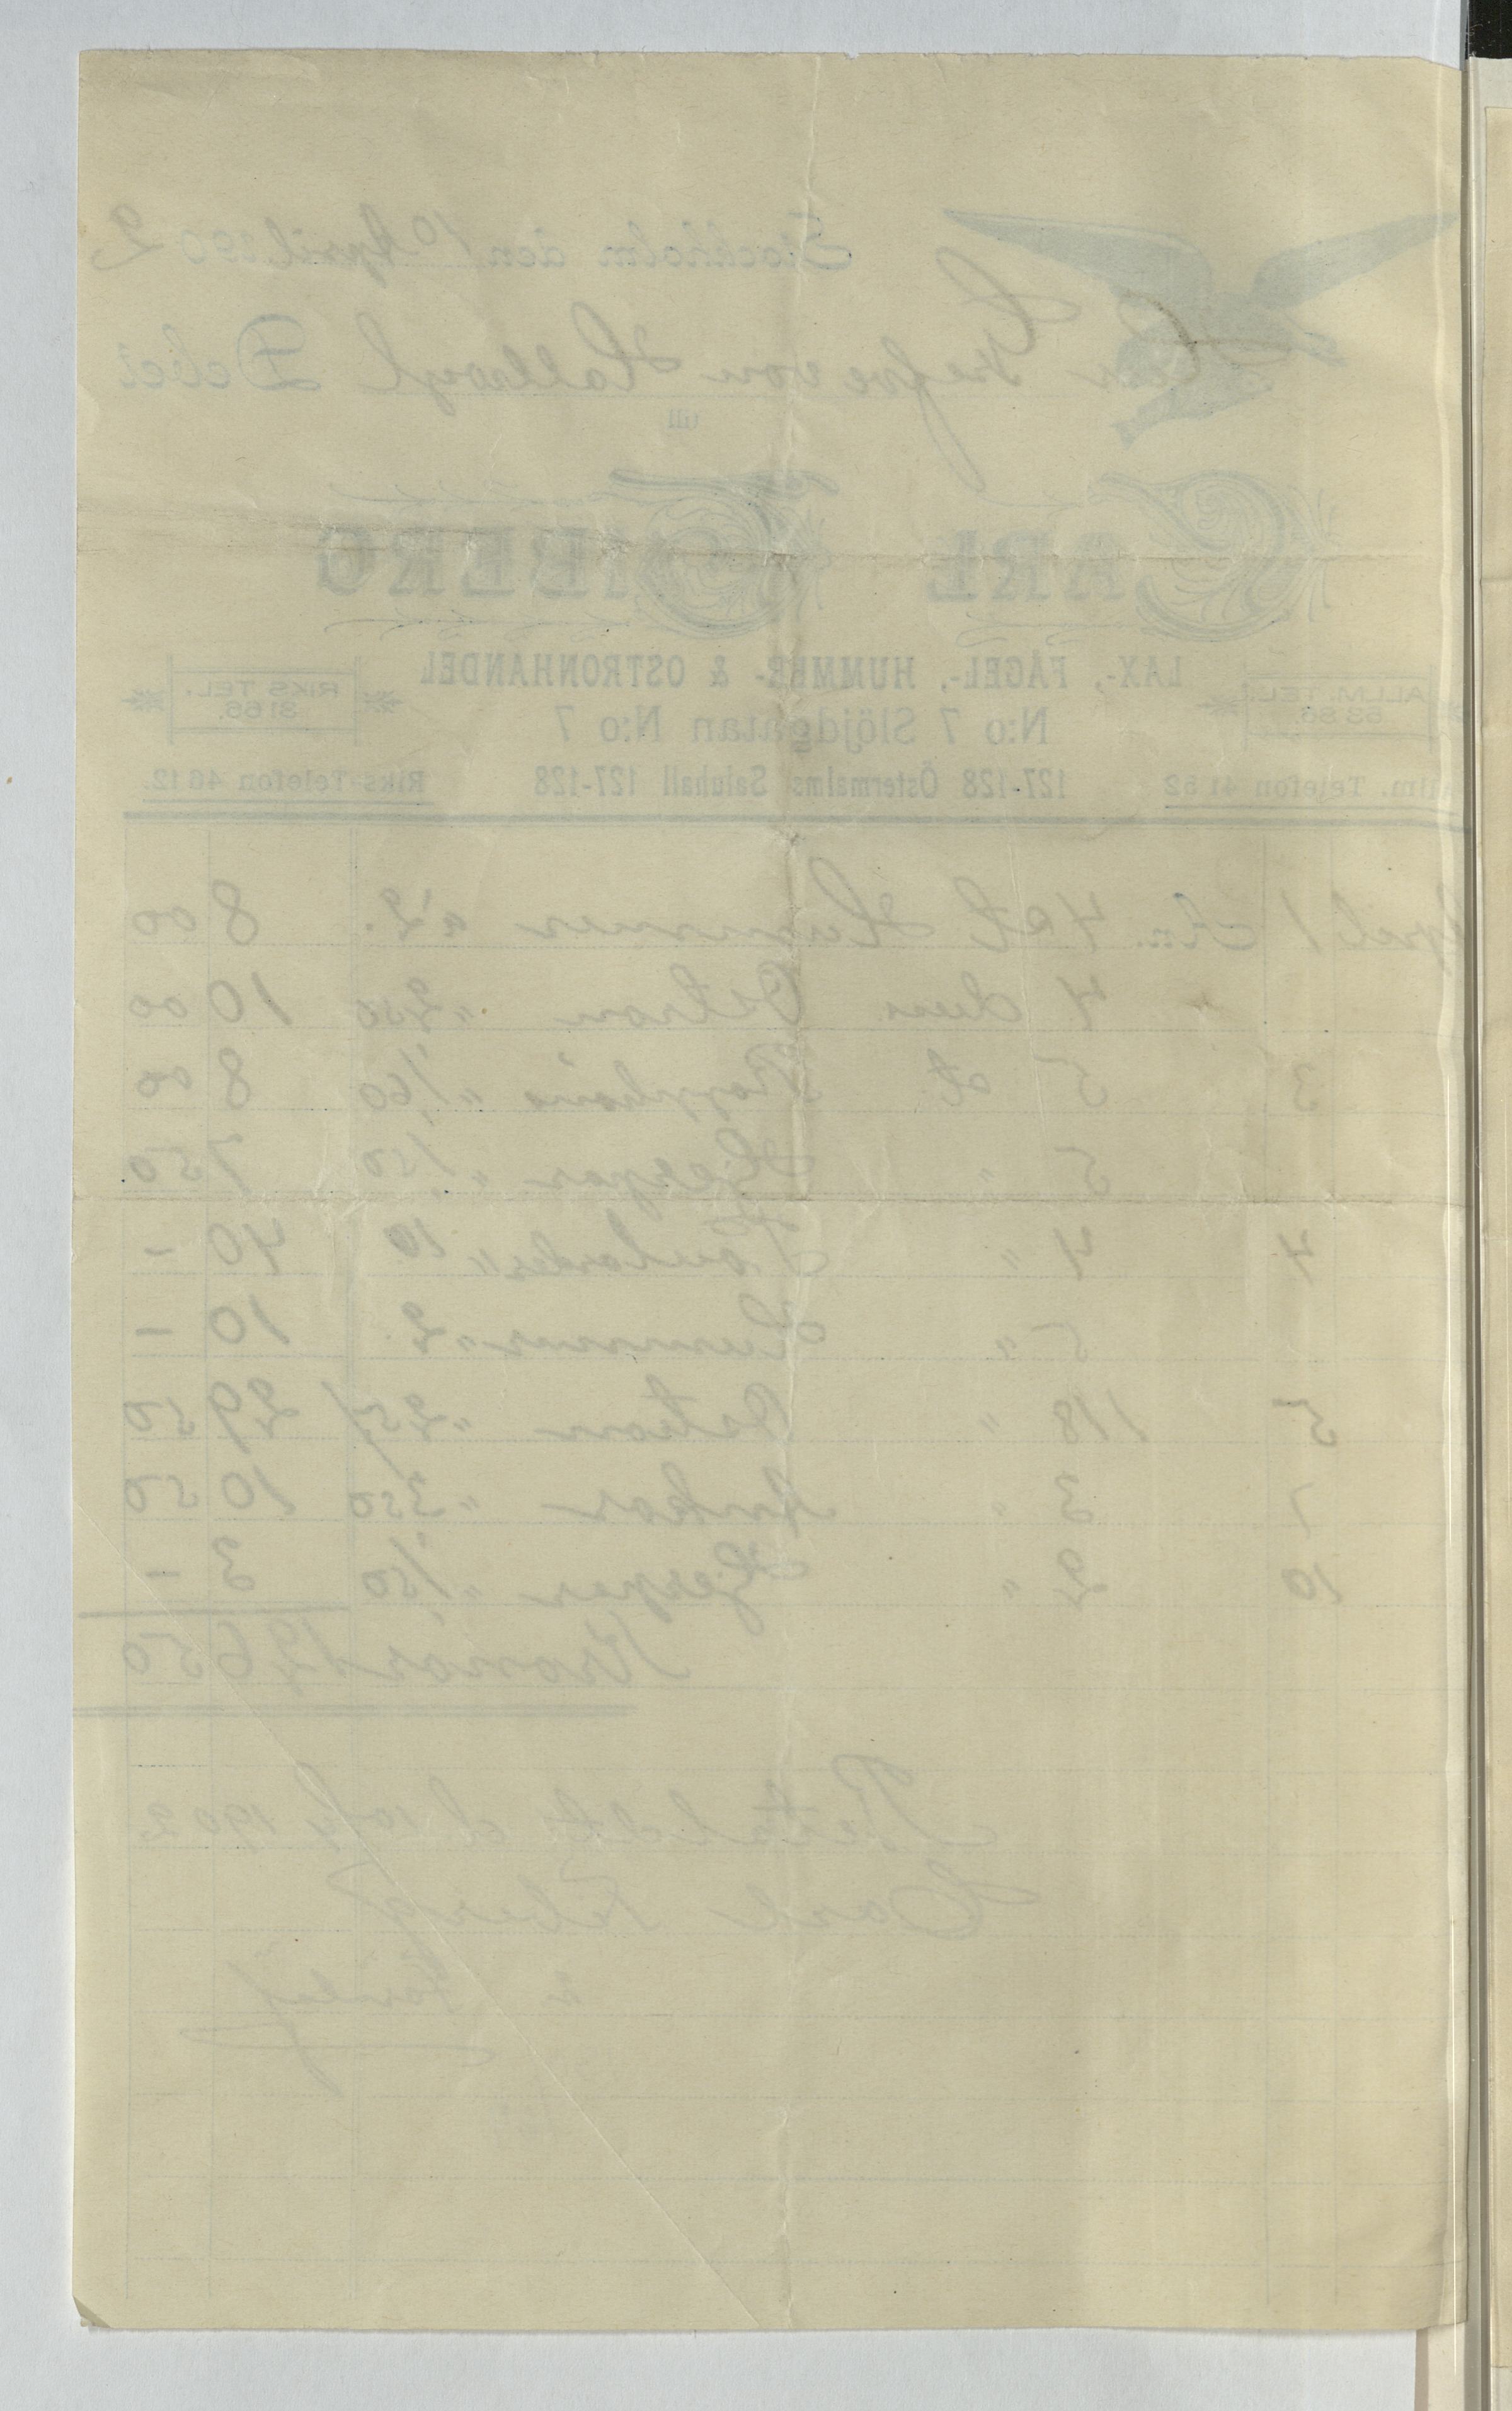 Stockholm den 10 April 1902
Herr Grefve von Hallwyl Debet
till
CARL FEBERG
LAX-, FÅGEL-, HUMMER- & OSTRONHANDEL
ALLM. TEL. 53 86.
RIKS TEL. 3166.
N:o 7 Slöjdgatan N:o 7
Allm. Telefon 41 52
127-128 Östermalms Saluhall 127-128
Riks-Telefon 46 12.
April 1 An. 4 st Hummer a 2. 8 00
" 4 duss Ostron " 250 10 00
3 5 st " 1,60 8 00
5 " Hjerpar " 1,50 7 50
4 4 " Poularder " 10 40 -
5 " Hummer " 2 10 -
5 118 " Ostron " 25/ 29 50
7 3 " Ankor " 350 10 50
10 2 " Hjerpar " 1,50 3 -
Kronor 126 50
Betaldt d 10/4 1902
Carl Feberg